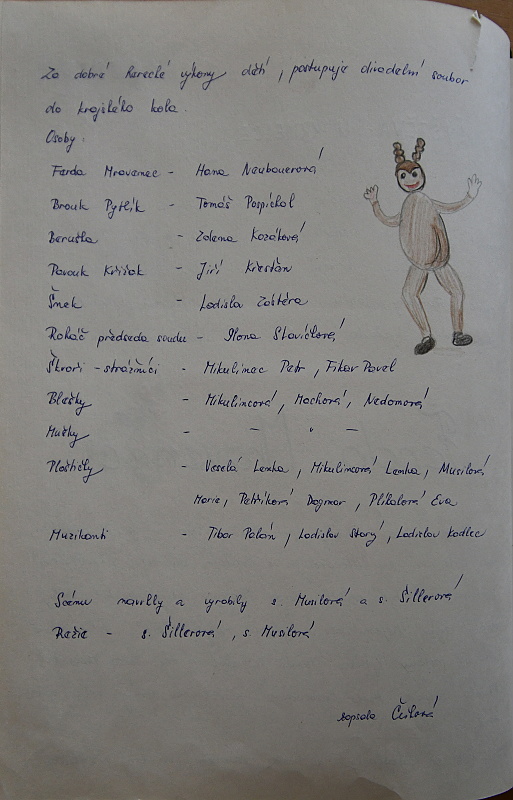 Za dobré herecké výkony dětí, postupuje divadelní soubor
do krajského kola.
Osoby:
Ferda Mravenec - Hana Neubauerová
Brouk Pytlík - Tomáš Pospíchal
Beruška - Zdena Kozáková
Pavouk Křižák - Jiří Křesťan
Šnek - Ladislav Zástěra
Roháč předseda soudu - Ilona Slavíčková
Škvoři - strážníci - Mikulinec Petr, Fikar Pavel
Blešky - Mikulincová, Machová, Nedomová
Mušky - - " -
Ploštičky - Veselá Lenka, Mikulincová Lenka, Musilová
Marie, Petříková Dagmar, Plíhalová Eva
Muzikanti - Tibor Palán, Ladislav Starý, Ladislav Kadlec
Scénu navrhly a vyrobily s. Musilová a s. Šillerová
Režie - s. Šillerová, s. Musilová
sepsala